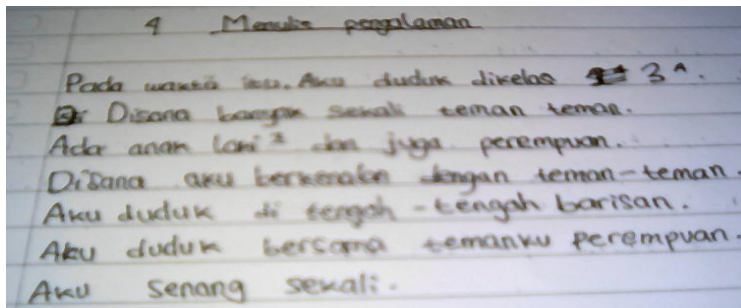 4 Menulis pengalaman
Pada waktu itu. Aku duduk dikelas 3 A.
Disana banyak sekali teman teman.
Ada anak laki² dan juga perempuan.
Disana aku berkenalan dengan teman-teman.
Aku duduk di tengah-tengah barisan.
Aku duduk bersama temanku perempuan.
Aku senang sekali.